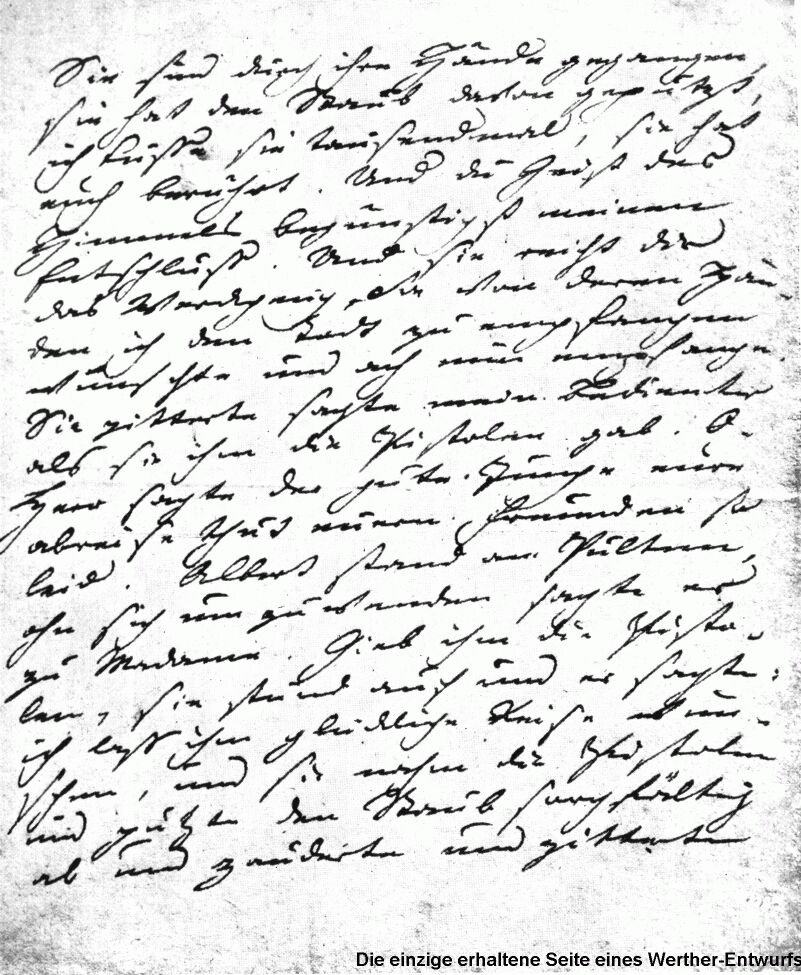 Sie sind durch ihre Hände gegangen,
sie hat den Staub davon geputzt,
ich küsse sie tausendmal, sie hat
euch berührt. Und du Geist des
Himmels begünstigst meinen
Entschluss. Und sie reicht dir
das Werckzeug, Sie von deren Hän-
den ich den Todt zu empfangen
wünschte und ach nun empfange.
Sie zitterte sagte mein Bedienter
als sie ihm die Pistolen gab. O
Herr sagte der gute Junge eure
abreise thut euern Freunden so
leid. Albert stand am Pulten,
ohn sich um zu wenden sagte er
zu Madame. Gieb ihm die Pisto-
len, sie stund auf und er sagte:
ich lass ihm glückliche Reise wün-
schen, und sie nahm die Pistolen
und putzte den Staub sorgfältig
ab und zauderte und zitterte
Die einzige erhaltene Seite eines Werther-Entwurfs